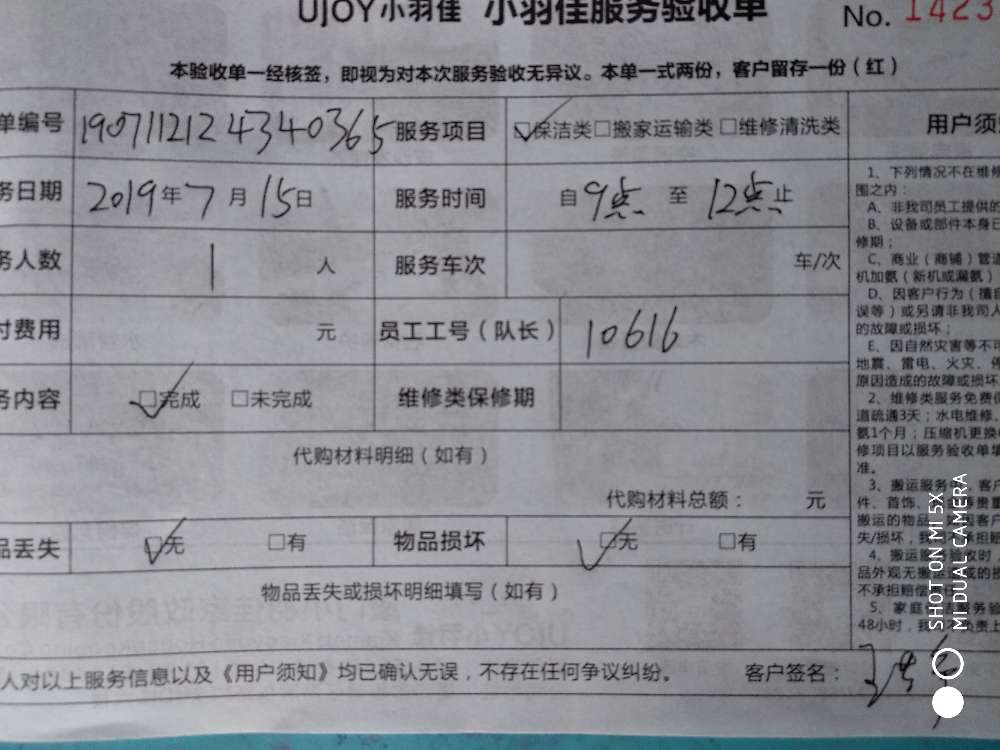 UJOY小羽佳 小羽佳服务验收单 No. 1423
本验收单一经核签，即视为对本次服务验收无异议。本单一式两份，客户留存一份（红）
单编号 1907112124340365 服务项目 ☑保洁类 □搬家运输类 □维修清洗类
务日期 2019年7月15日 服务时间 自9点 至 12点止
务人数 1 人 服务车次 车/次
付费用 元 员工工号（队长） 10616
务内容 ☑完成 □未完成 维修类保修期
代购材料明细（如有）
代购材料总额： 元
品丢失 ☑无 □有 物品损坏 ☑无 □有
物品丢失或损坏明细填写（如有）
人对以上服务信息以及《用户须知》均已确认无误，不存在任何争议纠纷。 客户签名：
用户须
1、下列情况不在维修
围之内：
A、非我司员工提供的
B、设备或部件本身已
修期；
C、商业（商铺）管道
机加氨（新机或漏氨）
D、因客户行为（擅自
误等）或另请非我司人
的故障或损坏；
E、因自然灾害等不可
地震、雷电、火灾、
原因造成的故障或损坏
2、维修类服务免费
道疏通3天；水电维修
氨1个月；压缩机更换
修项目以服务验收单
准。
3、搬运服务中，客户
件、首饰、
搬运的物品
失/损坏，
4、搬运服务验收时，
品外观无搬运造成的损
不承担赔偿
5、家庭
48小时，
SHOT ON MI 5X
MI DUAL CAMERA